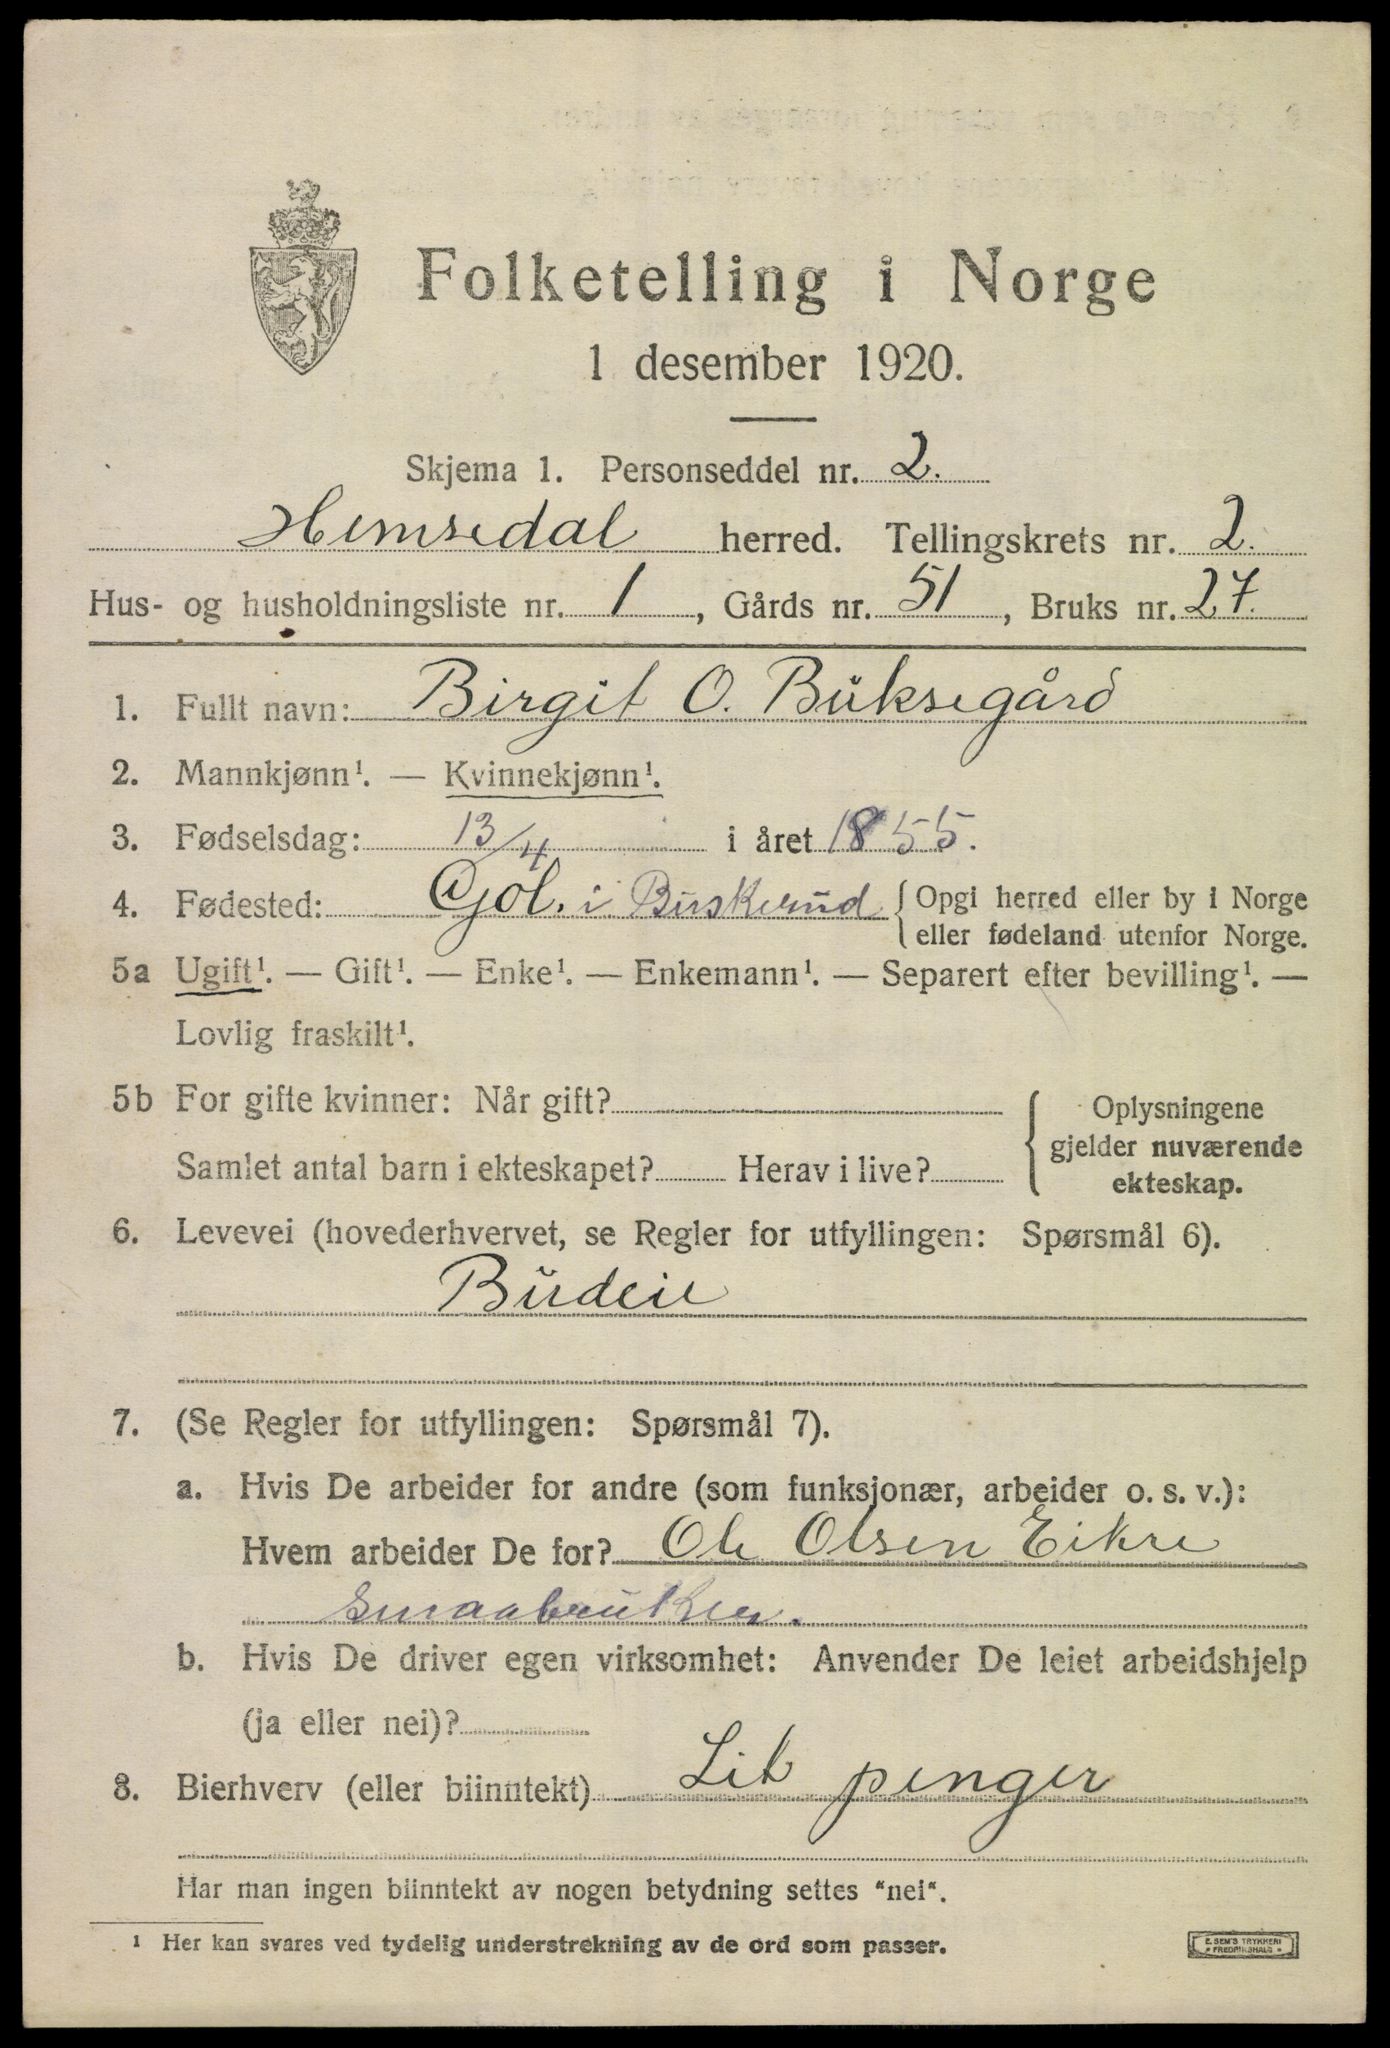 Folketelling i Norge
1 desember 1920.
Skjema 1. Personseddel nr. 2.
Hemsedal herred. Tellingskrets nr. 2.
Hus- og husholdningsliste nr. 1, Gårds nr. 51, Bruks nr. 27.
1. Fullt navn: Birgit O. Büksegård
2. Mannkjønn¹. — Kvinnekjønn¹.
3. Fødselsdag: 13/4 i året 1855.
4. Fødested: Gol. i Buskerud { Opgi herred eller by i Norge
eller fødeland utenfor Norge.
5a Ugift¹. — Gift¹. — Enke¹. — Enkemann¹. — Separert efter bevilling¹. —
Lovlig fraskilt¹.
5b For gifte kvinner: Når gift?
Samlet antal barn i ekteskapet? Herav i live?
Oplysningene
gjelder nuværende
ekteskap.
6. Levevei (hovederhvervet, se Regler for utfyllingen: Spørsmål 6).
Büdeie
7. (Se Regler for utfyllingen: Spørsmål 7).
a. Hvis De arbeider for andre (som funksjonær, arbeider o. s. v.):
Hvem arbeider De for? Ole Olsen Eikre
Smaabruker.
b. Hvis De driver egen virksomhet: Anvender De leiet arbeidshjelp
(ja eller nei)?
8. Bierhverv (eller biinntekt) Lit penger
Har man ingen biinntekt av nogen betydning settes "nei".
¹ Her kan svares ved tydelig understrekning av de ord som passer.
E. SEM'S TRYKKERI
FREDRIKSHALD